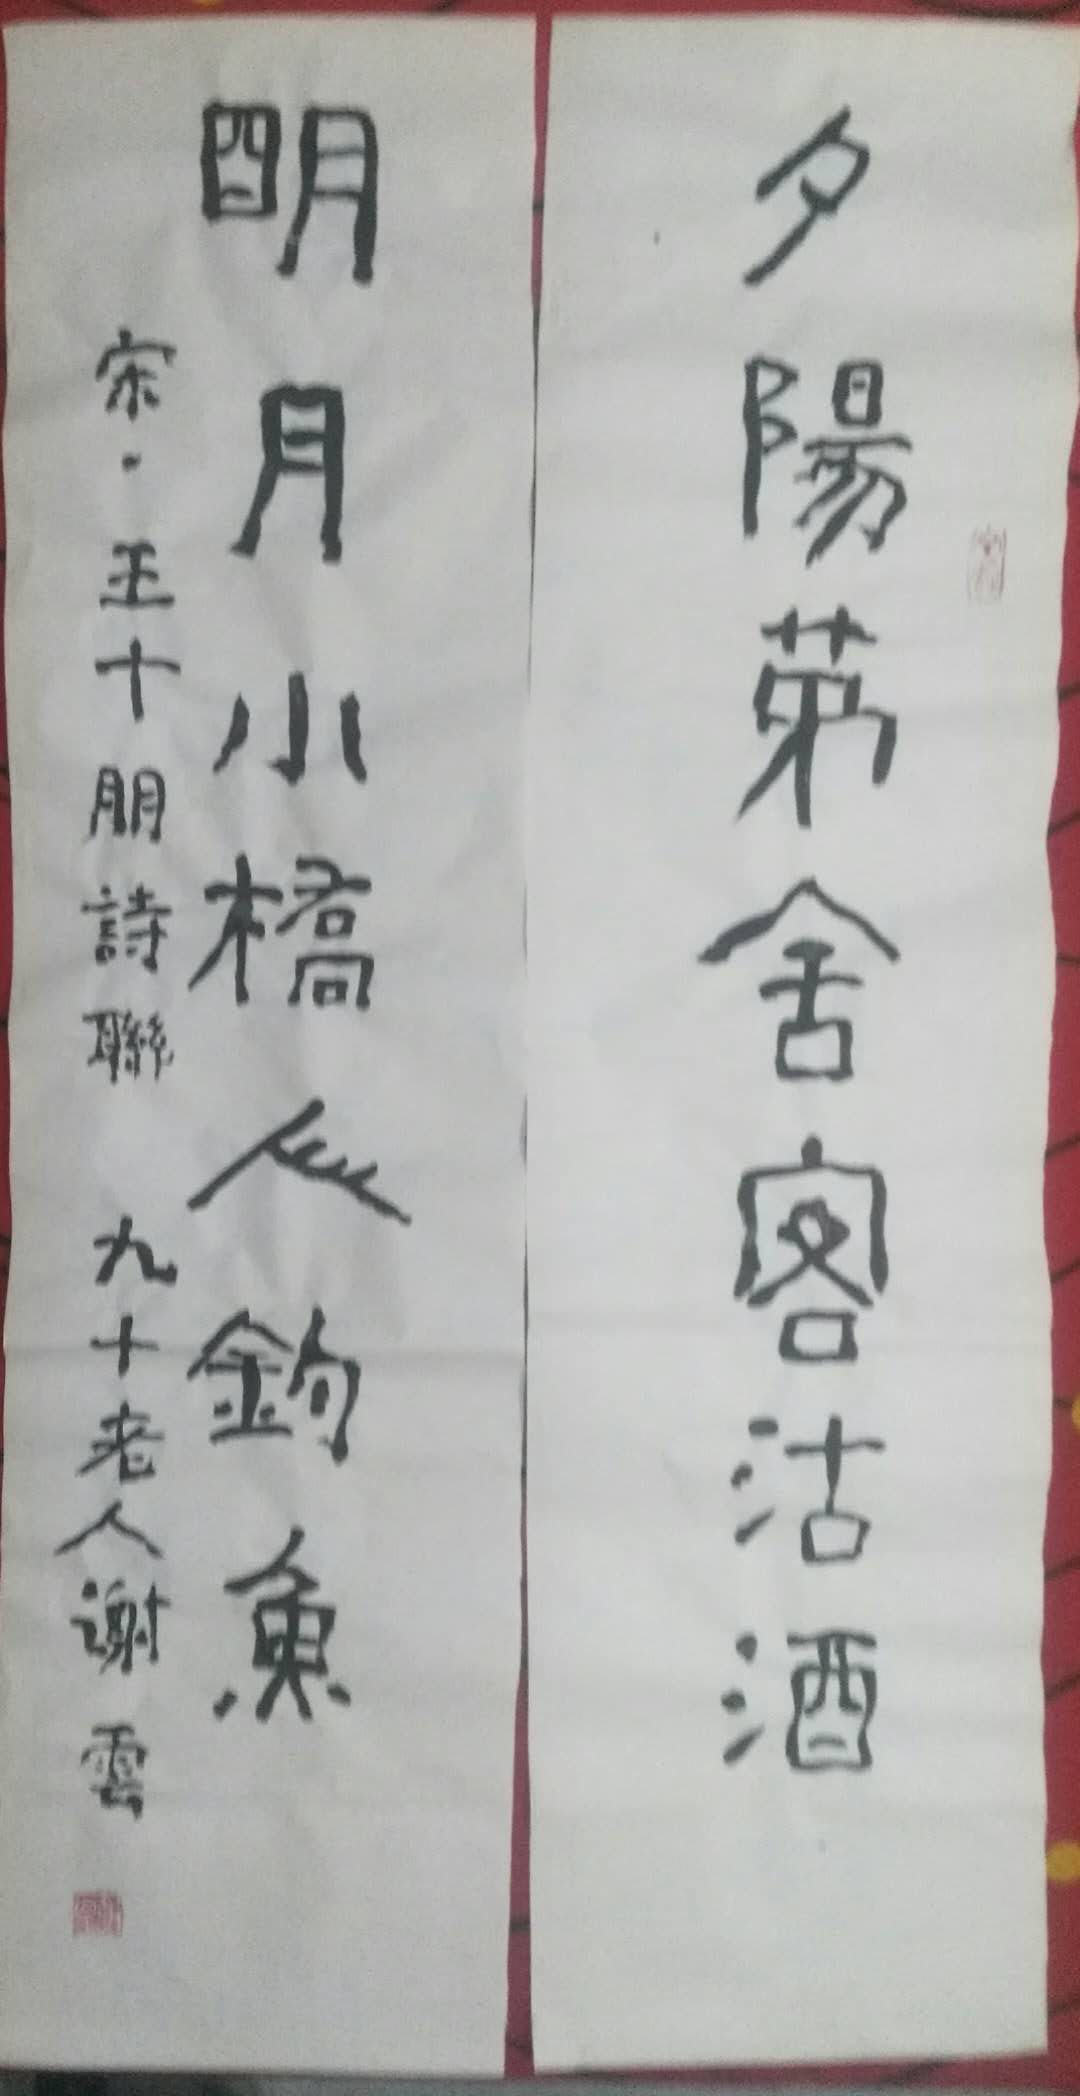 夕陽茅舍客沽酒
明月小橋人釣魚
宋·王十朋詩聯 九十老人谢雲